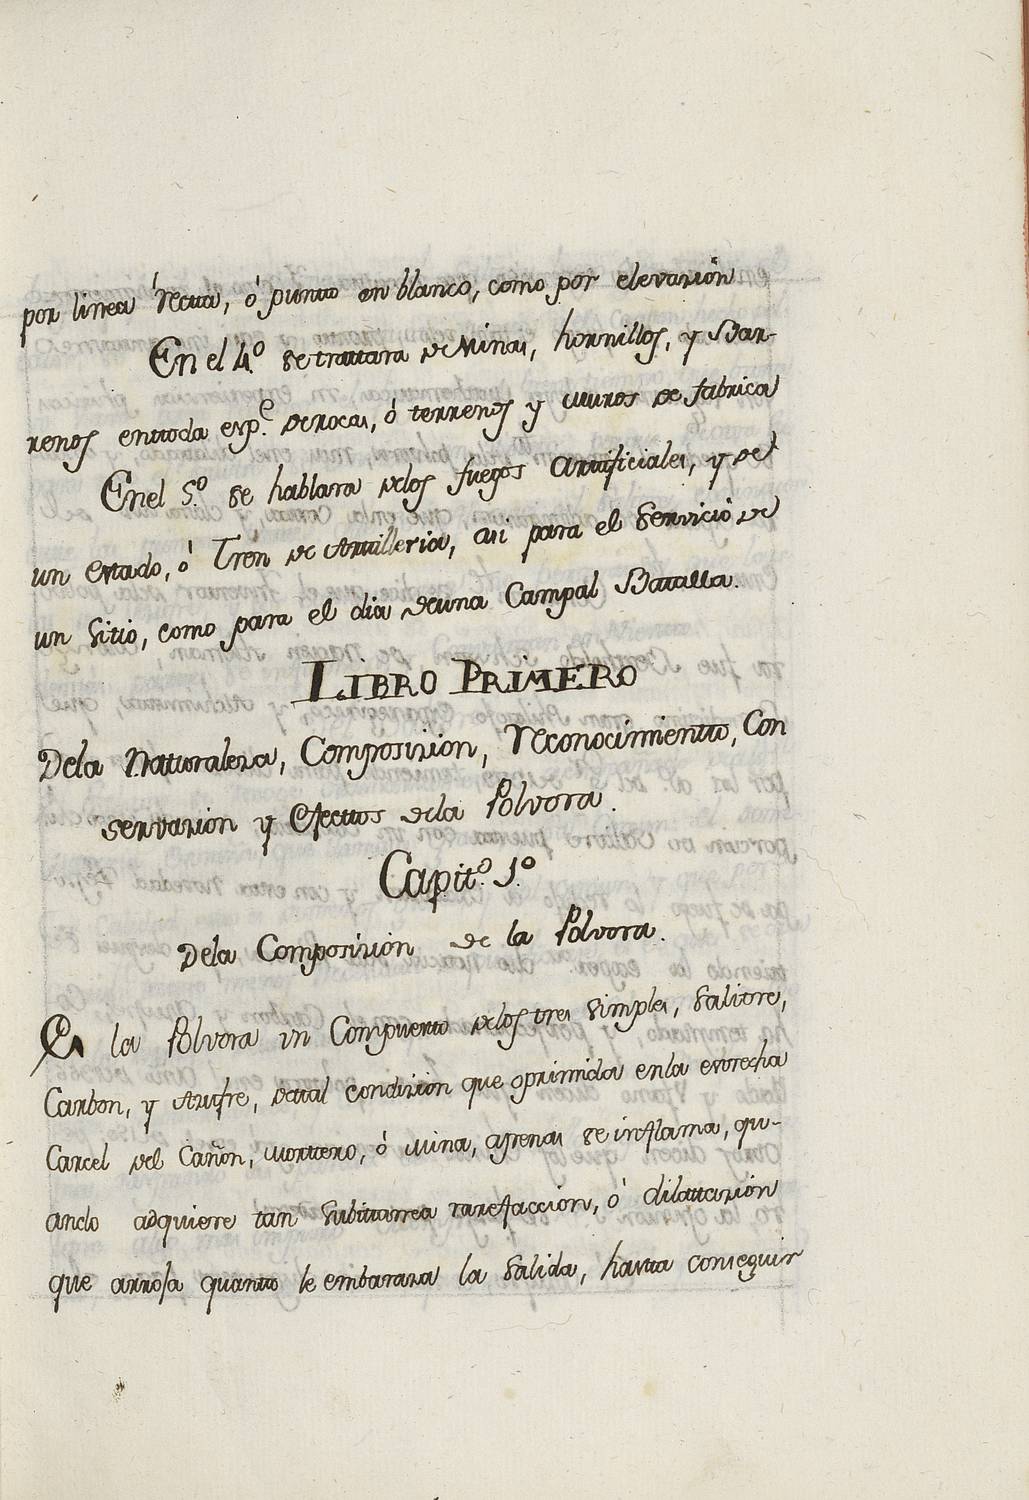 por linea recta, ó punto en blanco, como por elevazión
En el 4.º se trattara de Minas, hornillos, y Bar-
renos en toda esp.e de rocas, ó terrenos y muros de fabrica
En el 5.º se hablara de los fuegos Artificiales, y de
un estado, ó Tren de Artilleria, asi para el Servicio de
un Sitio, como para el dia de una Campal Batalla.
LIBRO PRIMERO
De la Naturaleza, Composizion, reconocimiento, Con
servazion y Efectos de la Polvora.
Capit.º 1.º
De la Composizion de la Polvora.
Es la Polvora un Compuesto de los tres Simples, Salitre,
Carbon, y Azufre, de tal condizion que oprimida en la estrecha
Carcel del Cañon, mortero, ó Mina, apenas se inflama, qu-
ando adquiere tan Subittanea rarefaccion, ó dilattazion
que arroja quanto le embaraza la Salida, hasta conseguir